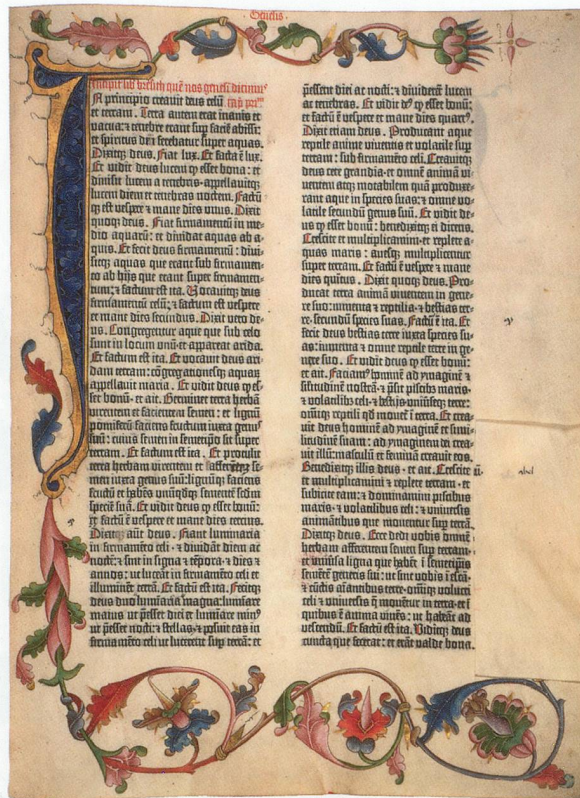 Genesis.
Incipit lib̄ bresith quē nos genesim dicimꝰ
In principio creauit deus celū cap̄ pri͞m.
et terram. Terra autem erat inanis et
vacua: et tenebre erant sup̄ faciē abissi:
et spiritus dn̄i ferebatur super aquas.
Dixitq; deus. Fiat lux. Et facta ē lux.
Et vidit deus lucem ꝙ esset bona: et
diuisit lucem a tenebris· appellauitq;
lucem diem et tenebras noctem. Factū
q; est vespere et mane dies vnus. Dixit
quoq; deus. Fiat firmamentū in me-
dio aquarū: et diuidat aquas ab a-
quis. Et fecit deus firmamentū: diui-
sitq; aquas que erant sub firmamen-
to ab hijs que erant super firmamen-
tum: et factum est ita. Vocauitq; deus
firmamentum celū: et factum est vespere
et mane dies secundus. Dixit vero de-
us. Congregentur aque que sub celo
sunt in locum vnū et appareat arida.
Et factum est ita. Et vocauit deus ari-
dam terram: cōgregationesq; aquarum
appellauit maria. Et vidit deus ꝙ es-
set bonū· et ait. Germinet terra herbā
virentem et facientem semen: et lignū
pomiferū faciens fructum iuxta genus
suū: cuius semen in semetipso sit super
terram. Et factum est ita. Et protulit
terra herbam virentem et facientem se-
men iuxta genus suū: lignūq; faciens
fructū et habēs vnūqdq; sementē scdm
speciē suā. Et vidit deus ꝙ esset bonū:
et factū ē vespere et mane dies tercius.
Dixitq; aūt deus. Fiant luminaria
in firmamēto celi· et diuidāt diem ac
noctē: et sint in signa et tēpora· et dies et
annos: ut luceāt in firmamēto celi et
illuminēt terrā. Et factū est ita. Fecitq;
deus duo luminaria magna: luminare
maius ut p̄esset diei et luminare minꝰ
ut p̄esset nocti: et stellas· et posuit eas in
firmamēto celi ut lucerent sup̄ terrā: et
p̄essent diei ac nocti: et diuiderent lucem
ac tenebras. Et vidit dꝰ ꝙ esset bonū:
et factū ē vespere et mane dies quartꝰ.
Dixit etiam deus. Producant aque
reptile anime viuentis et volatile sup̄
terram: sub firmamēto celi. Creauitq;
deus cete grandia· et omnē animā vi-
uentem atq; motabilem quā produxe-
rant aque in species suas: et omne vo-
latile secundū genus suū. Et vidit de-
us ꝙ esset bonū: benedixitq; eis dicens.
Crescite et multiplicamini· et replete a-
quas maris: auesq; multiplicentur
super terram. Et factū ē vespere et mane
dies quintus. Dixit quoq; deus. Pro-
ducat terra animā viuentem in gene-
re suo: iumenta et reptilia· et bestias ter-
re· secundū species suas. Factū ē ita. Et
fecit deus bestias terre iuxta species su-
as: iumenta et omne reptile terre in ge-
nere suo. Et vidit deus ꝙ esset bonū:
et ait. Faciamꝰ hominē ad ymaginē et
similitudinē nostrā· et p̄sit piscibꝰ maris·
et volatilibꝰ celi· et bestijs vniūseq; terre:
omīq; reptili qd mouet̄ ī terra. Et crea-
uit deus hominē ad ymaginē et simi-
litudinē suam: ad ymaginem dei crea-
uit illū: masculū et feminā creauit eos.
Benedixitq; illis deus· et ait. Crescite
et multiplicamini et replete terram· et
subicite eam: et dominamini piscibus
maris· et volatilibus celi: et vniuersis
animātibus que mouentur sup̄ terrā.
Dixitq; deus. Ecce dedi vobis omnē
herbam afferentem semen sup̄ terram·
et vniūsa ligna que habēt ī semetipsis
sementē generis sui: ut sint vobis ī escā·
et cūctis aīantibus terre· omīq; volucri
celi et vniuersis q̄ mouētur in terra· et ī
quibus ē anima viuēs: ut habeāt ad
vescendū. Et factū est ita. Viditq; deus
cuncta que fecerat: et erāt valde bona.